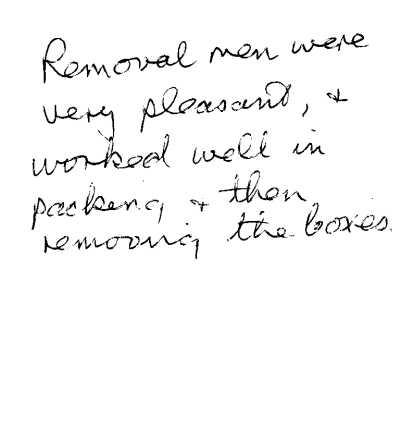 Removal men were
very pleasant, &
worked well in
packing & then
removing the boxes.